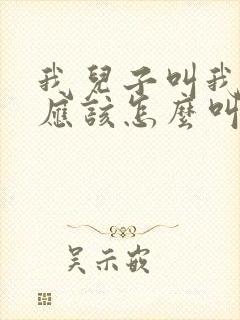 我兒子叫我
應該怎麼叫
吴示嵌